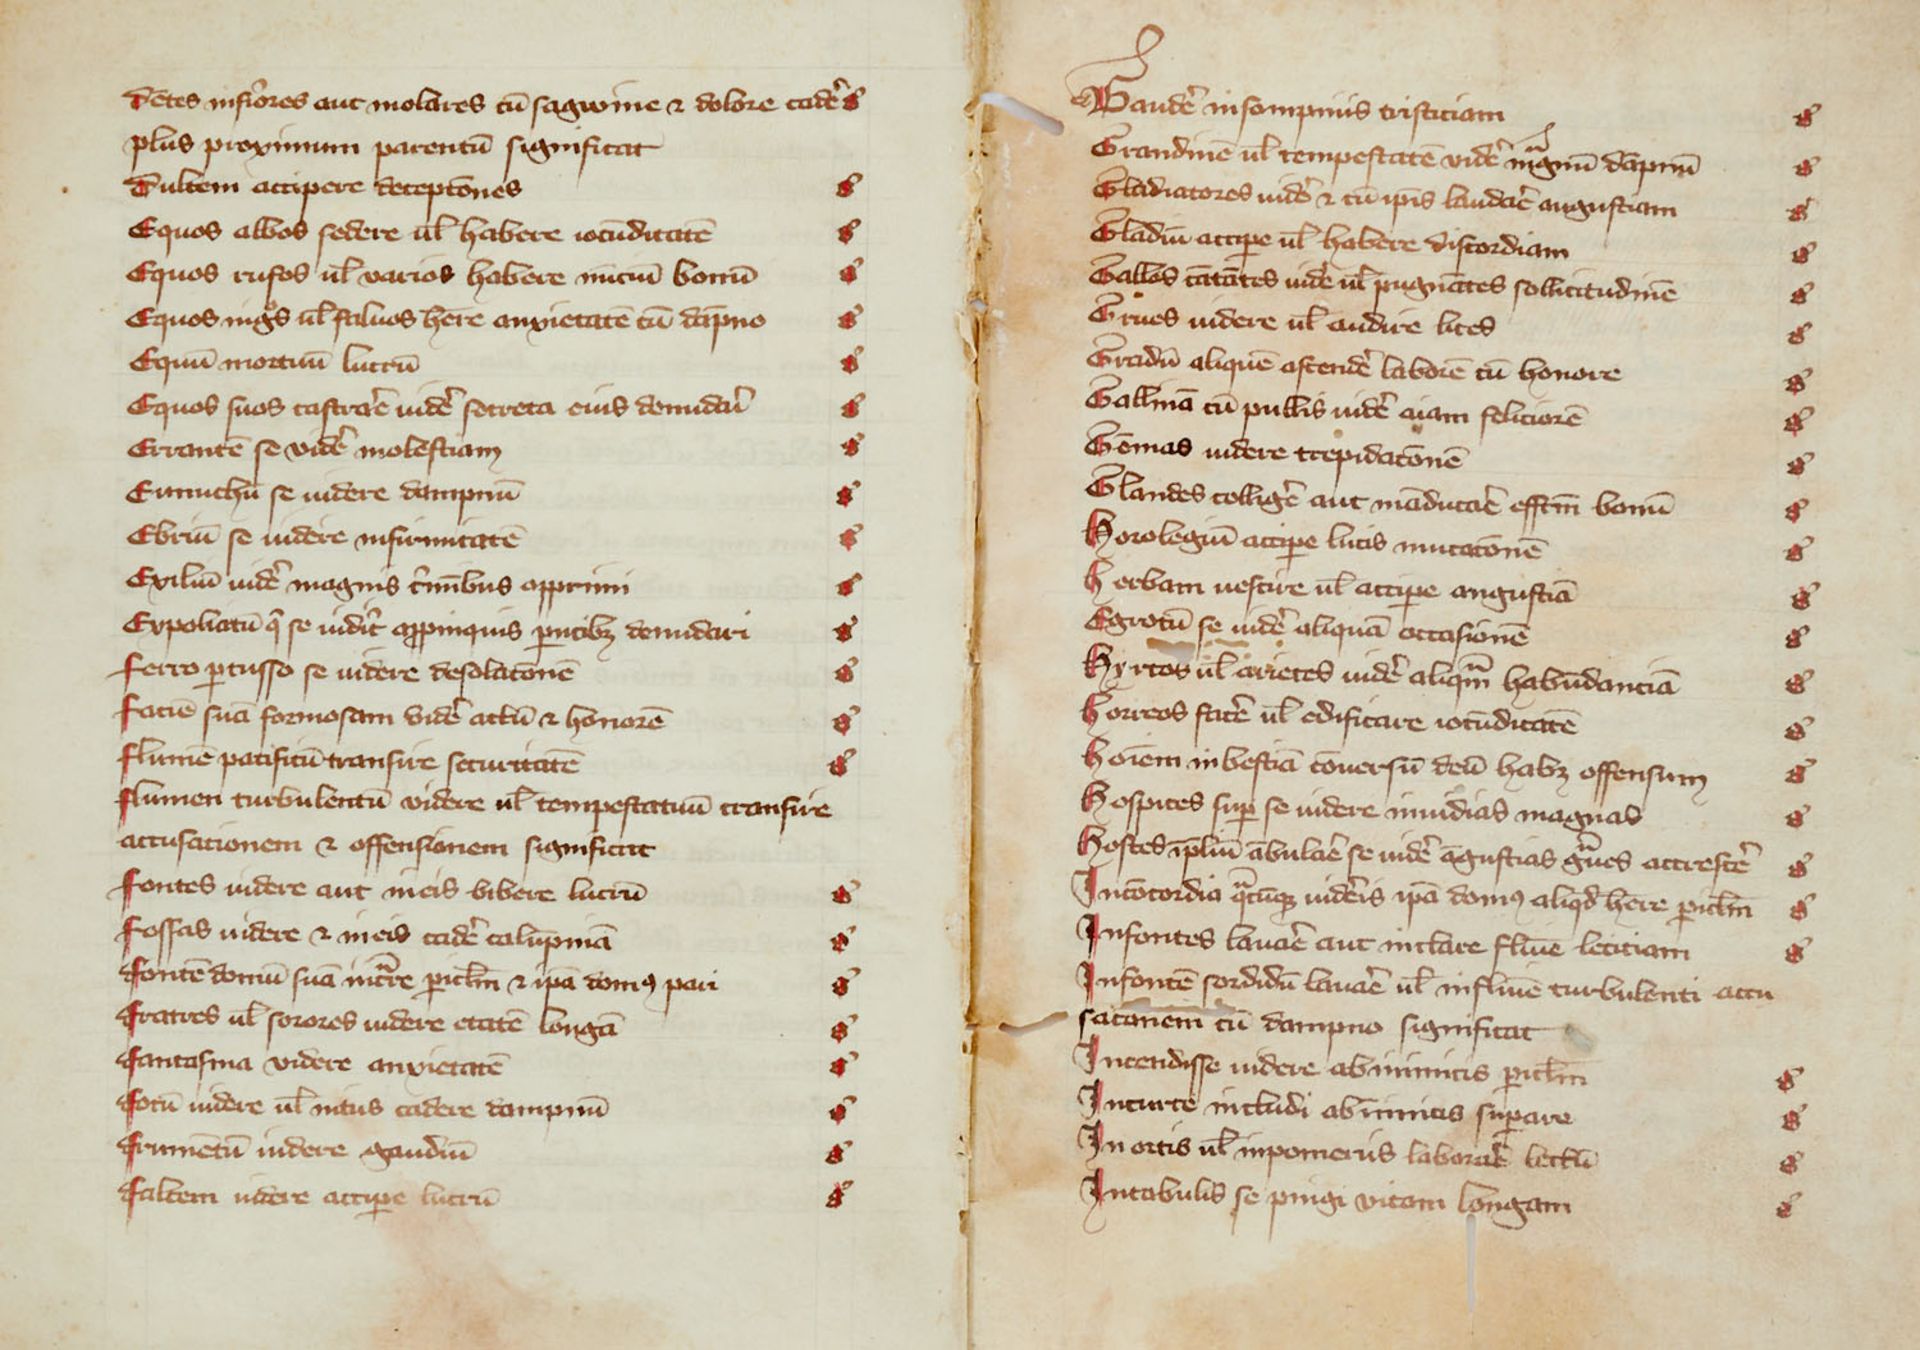 Dētes inf̄iores aut molares cū sagwine ⁊ dolore cadē̉ s̉
plus proximum parentū significat
Cultem accipere deceptōnes s̉
Equos albos sedere ul̄ habere iocūditatē s̉
Equos rufos ul̄ varios habere nūciū bonū s̉
Equos nigͦs ul̄ faluos hēre anxietatē cū dāpno s̉
Equū mortuū lucrū s̉
Equos suos castrar̄e uidē̉ secreta eius denudar̉ s̉
Errantē se vidē̉ molestiam s̉
Eunuchū se uidere dampnū s̉
Ebriū se uidere infirmitatē s̉
Exiliū uidē̉ magnis c̉mībus opprimi s̉
Expoliatū q̉ se uidīt appinquis pēntibꝫ denudari s̉
ferro ꝑcusso se uidere desolatōnē s̉
faciē suā formosam vidē̉ actū ⁊ honorē s̉
flumē pacificū transire securitatē s̉
flumen turbulentū videre ul̄ tempestatiuū transire
accusationem ⁊ offensionem significat
fontes uidere aut in eis bibere lucrū s̉
fossas uidere ⁊ in eis cadē̉ calūpniā s̉
fontē domū suā intͣre ꝑicl̄m ⁊ ipā domꝰ pati s̉
fratres ul̄ sorores uidere etatē longā s̉
fantasma videre anxietatē s̉
focū uidere ul̄ intus cadere dampnū s̉
frumētū uidere gaudiū s̉
falcem uidere acciꝑe lucrū s̉
Gaudē̉ in sompniis tristiciam s̉
Grandinē ul̄ tempestatē vidē̉ mͣgnū dāpnū s̉
Gladiatores uidē̉ ⁊ cū ip̄is laudar̄e angustiam s̉
Gladiū acciꝑe ul̄ habere discordiam s̉
Gallos cātātes uidē̉ ul̄ pugnātes sollicitudinē s̉
Grues uidere ul̄ audire lites s̉
Gradū aliquē ascendē̉ laborē cū honore s̉
Gallinā cū pullis uidē̉ aīam feliciorē s̉
Gēmas uidere trepidatōnē s̉
Glandes colligē̉ aut māducar̄e effc̄m bonū s̉
Horologiū acciꝑe lucis mutatōnē s̉
Herbam uestire ul̄ acciꝑe angustiā s̉
Egrotū se uidē̉ aliquā occasionē s̉
Hyrcos ul̄ arietes uidē̉ aliqͣm habūdanciā s̉
Horreos facē̉ ul̄ edificare iocūditatē s̉
Hoīem in bestiā cōuersū deū habꝫ offensum s̉
Hospites suꝑ se uidere inuidias magnas s̉
Hostes īpliū ābular̄e se uidē̉ āgustias gͣues accrescē̉ s̉
In cōcordia qͣcūqꝫ uidēis ipā domꝰ aliqd̉ hēre ꝑicl̄m s̉
In fontes lauar̄e aut in clare fluīe leticiam s̉
In fontē sordidū lauar̄e ul̄ in fluīe turbulenti accu
satōnem cū dampno significat
Incendisse uidere ab inimicis ꝑicl̄m s̉
In curte includi ab inimicis suꝑare s̉
In ortis ul̄ in pomeriis laborar̄e lectū s̉
In tabulis se pingi vitam longam s̉